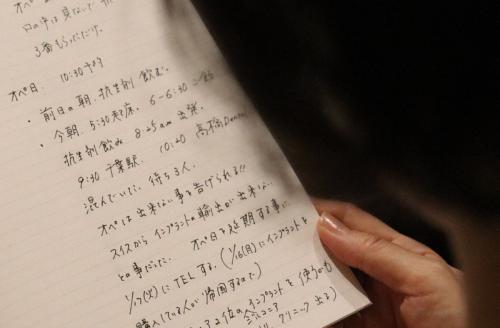 口の中は見ないで 抗
3番もらっただけ。
オペ日. 10:30予約
・前日の朝. 抗生剤 飲む.
・今朝. 5:30起床. 6-6:30
抗生剤飲み 8:25am 出発.
9:30 千葉駅. 10:20 高橋Dental
混んでいて. 待ち3人.
オペは出来ない事を告げられる!!
スイスから インプラントの輸出が 出来ない
との事だった. オペ日を延期する事に.
1/17(火)に TELする. (1/16(月)にインプラントを
購入している人が 帰国するので)
2位の インプラントを 使うのも
クリニック 出る)